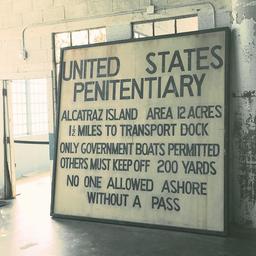 UNITED STATES
PENITENTIARY
ALCATRAZ ISLAND AREA 12 ACRES
1½ MILES TO TRANSPORT DOCK
ONLY GOVERNMENT BOATS PERMITTED
OTHERS MUST KEEP OFF 200 YARDS
NO ONE ALLOWED ASHORE
WITHOUT A PASS